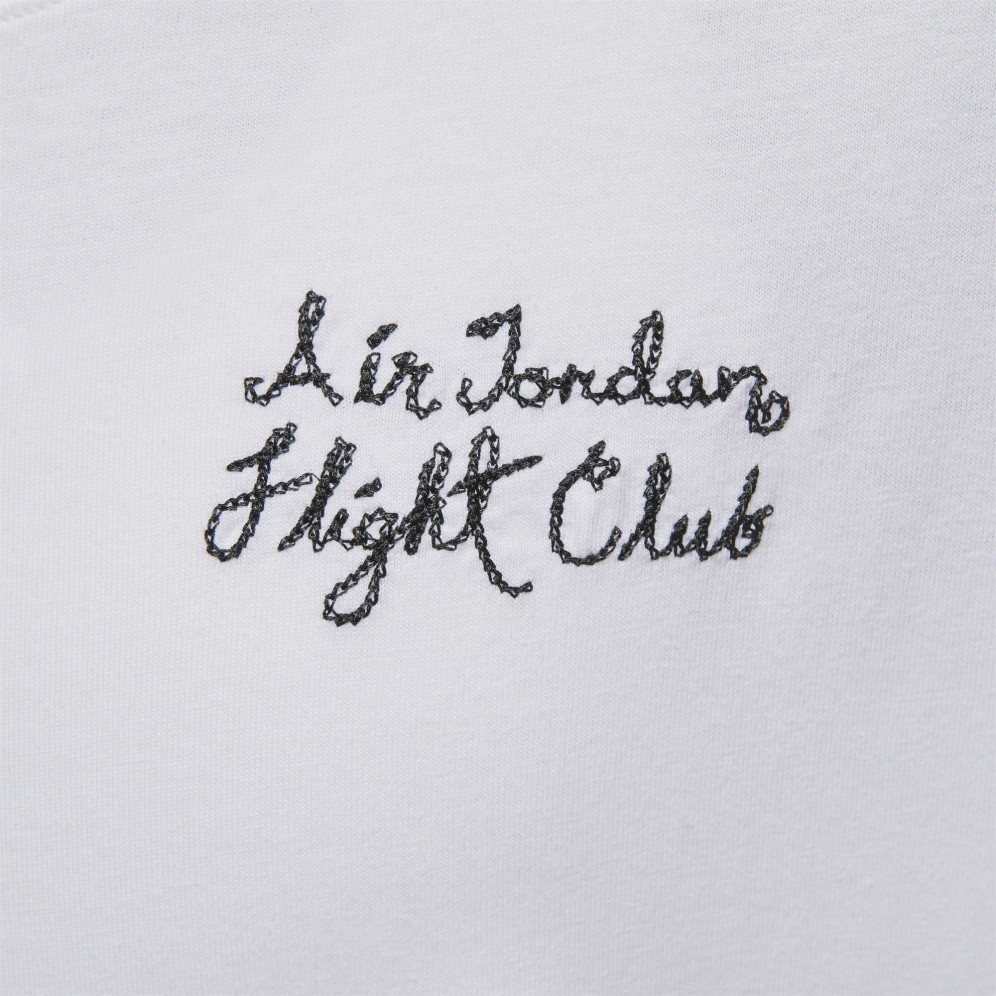 Air Jordan
Flight Club